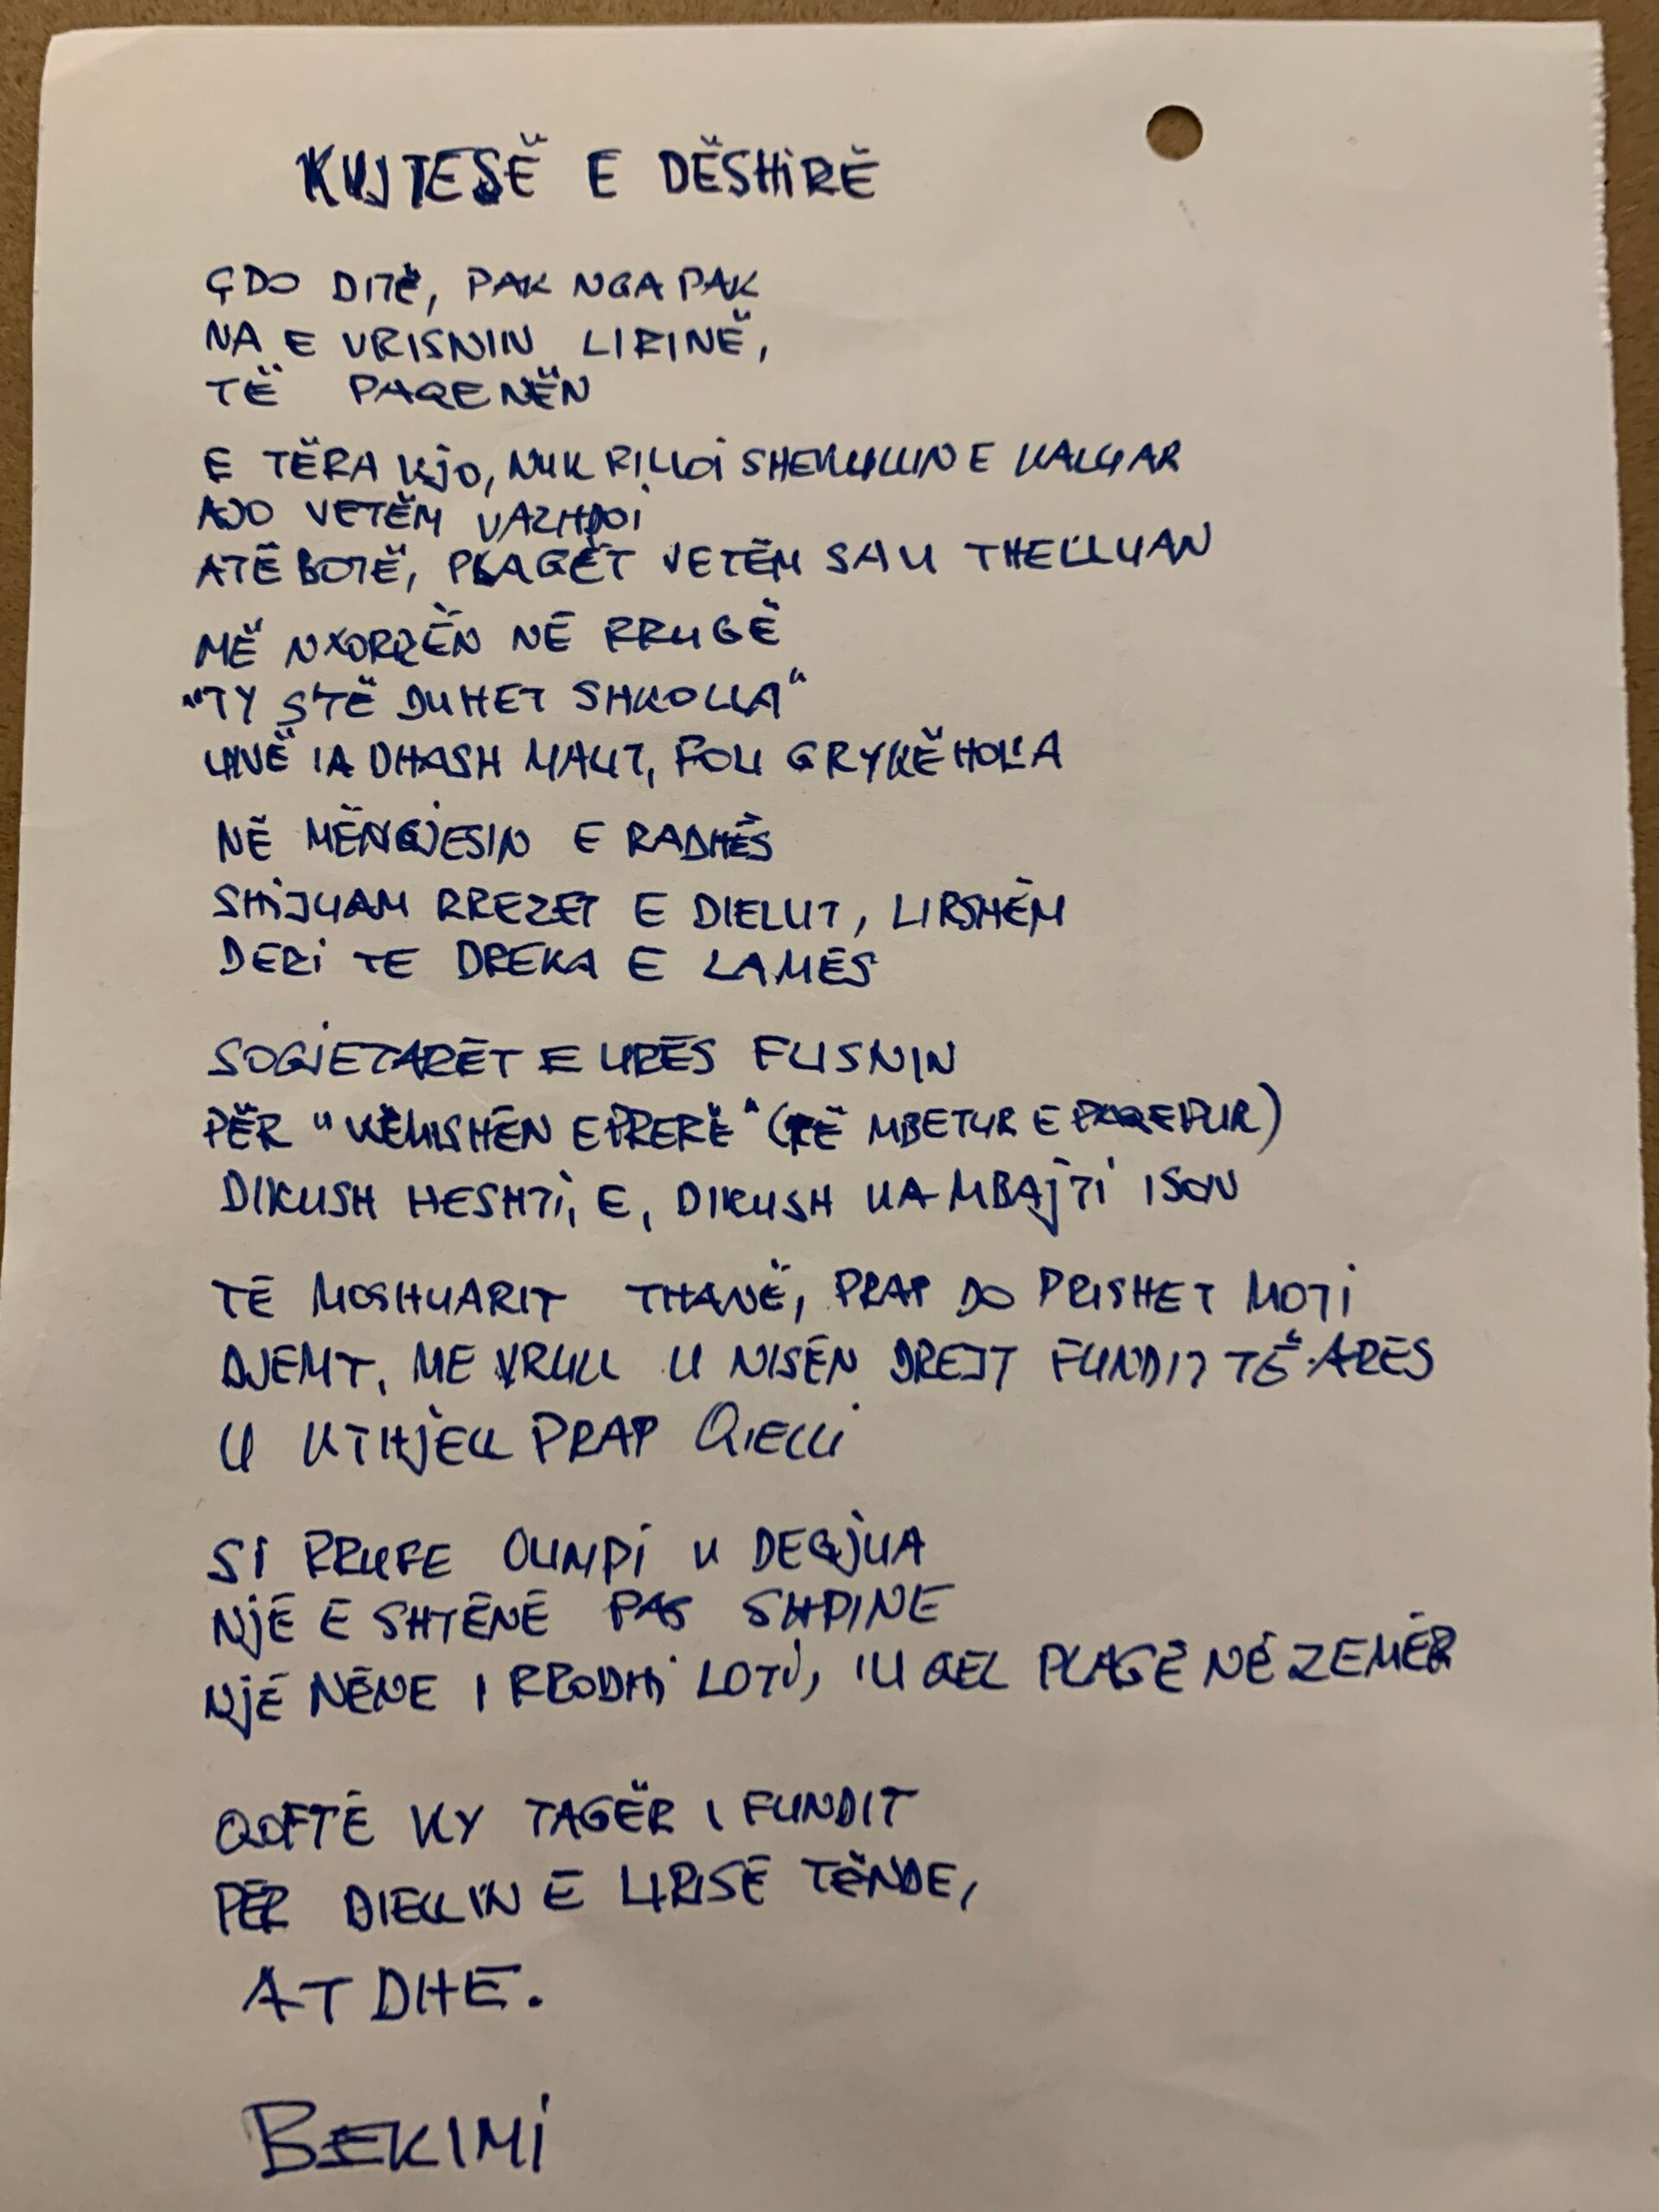 KUJTESË E DËSHIRË
ÇDO DITË, PAK NGA PAK
NA E VRISNIN LIRINË,
TË PAQENËN
E TËRA KJO, NUK FILLOI SHEKULLIN E KALUAR
AJO VETËM VAZHDOI
ATË BOTË, PLAGËT VETËM SA U THELLUAN
MË NXORRËN NË RRUGË
"TY S'TË DUHET SHKOLLA"
UNË IA DHASH MALIT, FOLI GRYKËHOLLA
NË MËNGJESIN E RADHËS
SHIJUAM RREZET E DIELLIT, LIRSHËM
DERI TE DREKA E LAMËS
SOGJETARËT E URËS FLISNIN
PËR "KËMISHËN E PRERË" (TË MBETUR E PAQEPUR)
DIKUSH HESHTI, E, DIKUSH UA MBAJTI ISON
TË MOSHUARIT THANË, PRAP DO PRISHET MOTI
DJEMT, ME VRULL U NISËN DREJT FUNDIT TË ARËS
U KTHJELL PRAP QIELLI
SI RRUFE OLIMPI U DEGJUA
NJË E SHTËNË PAS SHPINE
NJË NËNE I RRODHI LOTI, IU QEL PLAGË NË ZEMËR
QOFTË KY TAGËR I FUNDIT
PËR DIELLIN E LIRISË TËNDE,
ATDHE.
BEKIMI